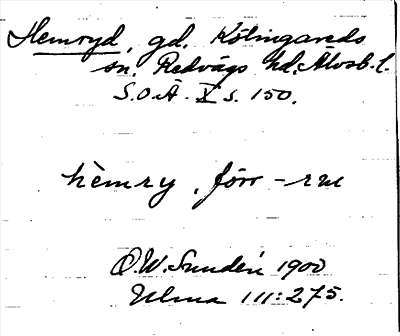 Hemryd, gd. Kölingareds
sn. Redvägs hd. Älvsb. l.
S.O.Ä. X s. 150.
hèmry, förr -rud
O.W. Sundén 1900
Ulma 111:275.